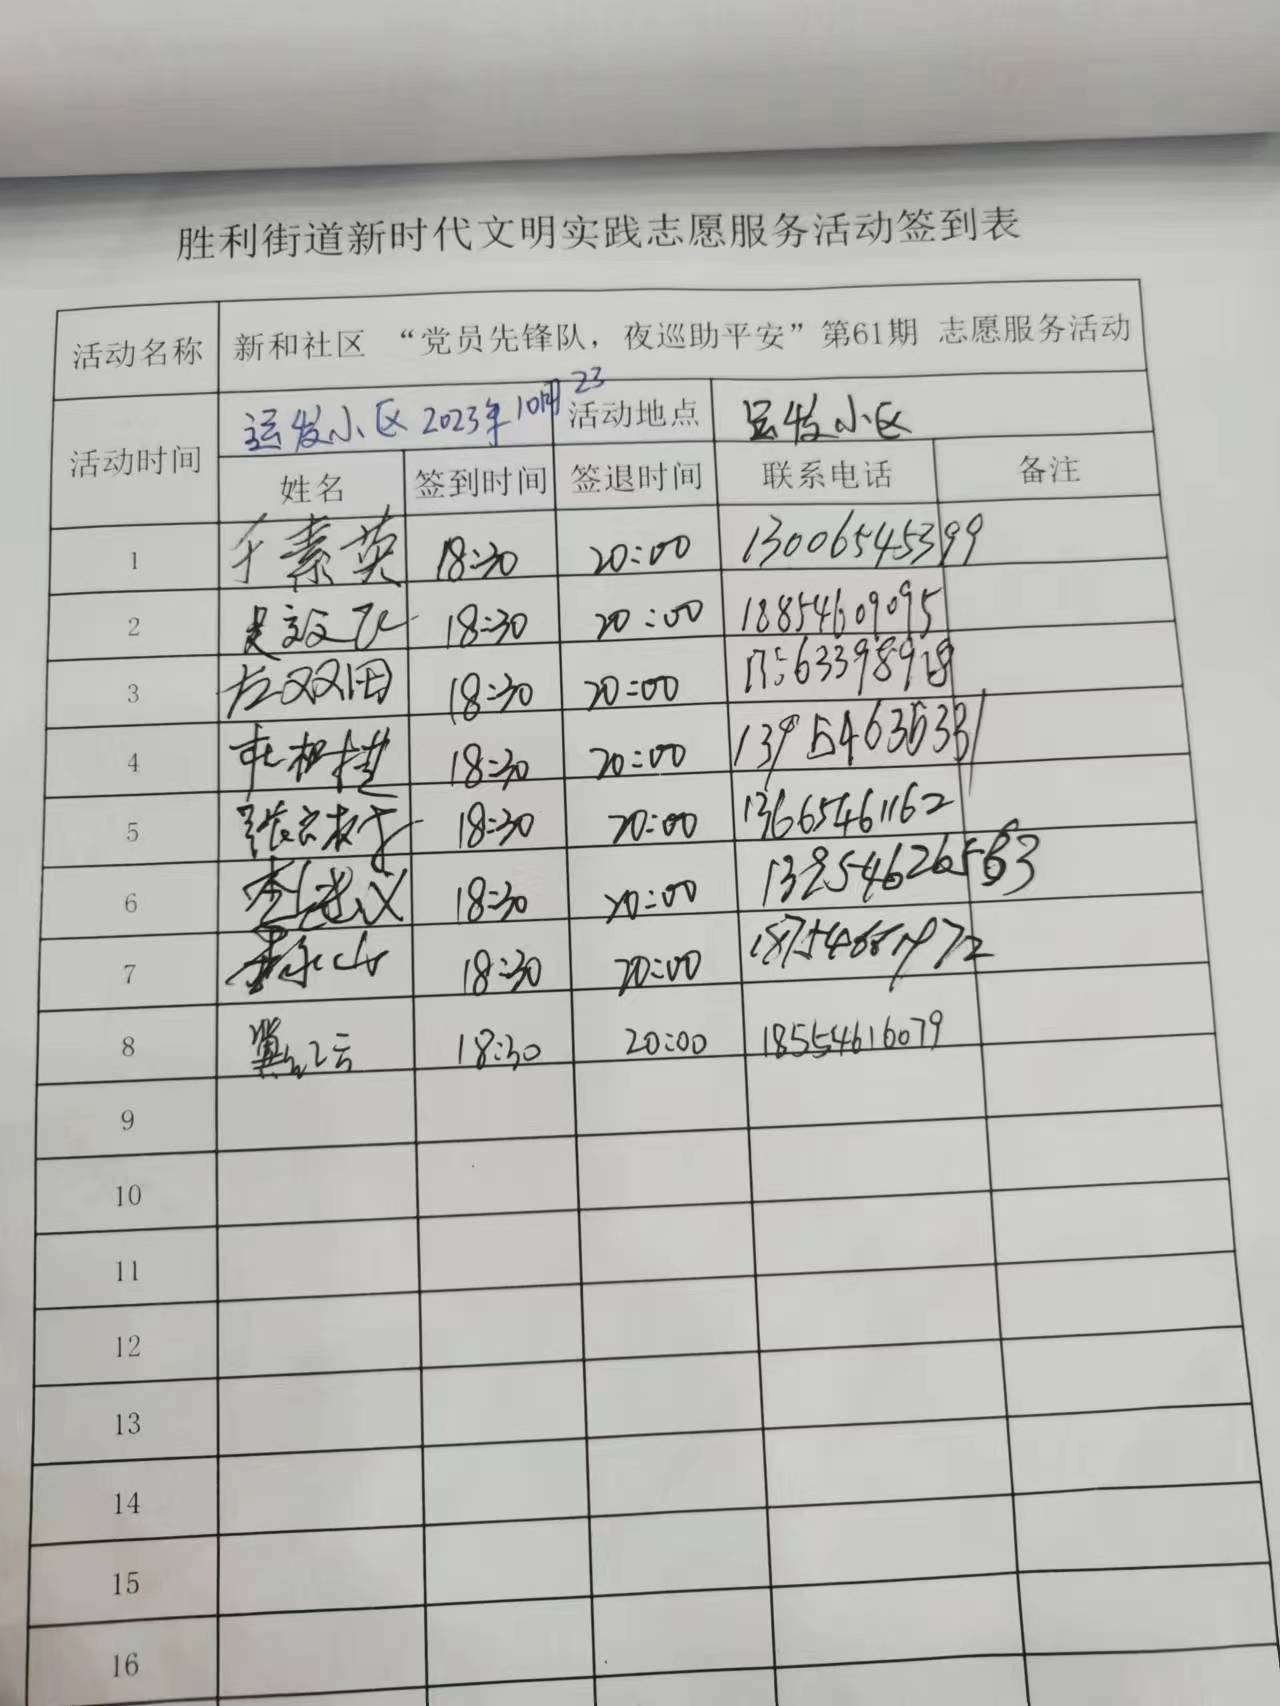 胜利街道新时代文明实践志愿服务活动签到表
活动名称 新和社区 “党员先锋队，夜巡助平安”第61期 志愿服务活动
活动时间 运发小区 2023年10月23 活动地点 运发小区
姓名 签到时间 签退时间 联系电话 备注
1 于素英 18:30 20:00 13006545399
2 18:30 20:00 18854609095
3 左双田 18:30 20:00
4 18:30 20:00
5 18:30 20:00 13665461162
6 18:30 20:00
7 18:30 20:00
8 冀红云 18:30 20:00 18554616079
9
10
11
12
13
14
15
16